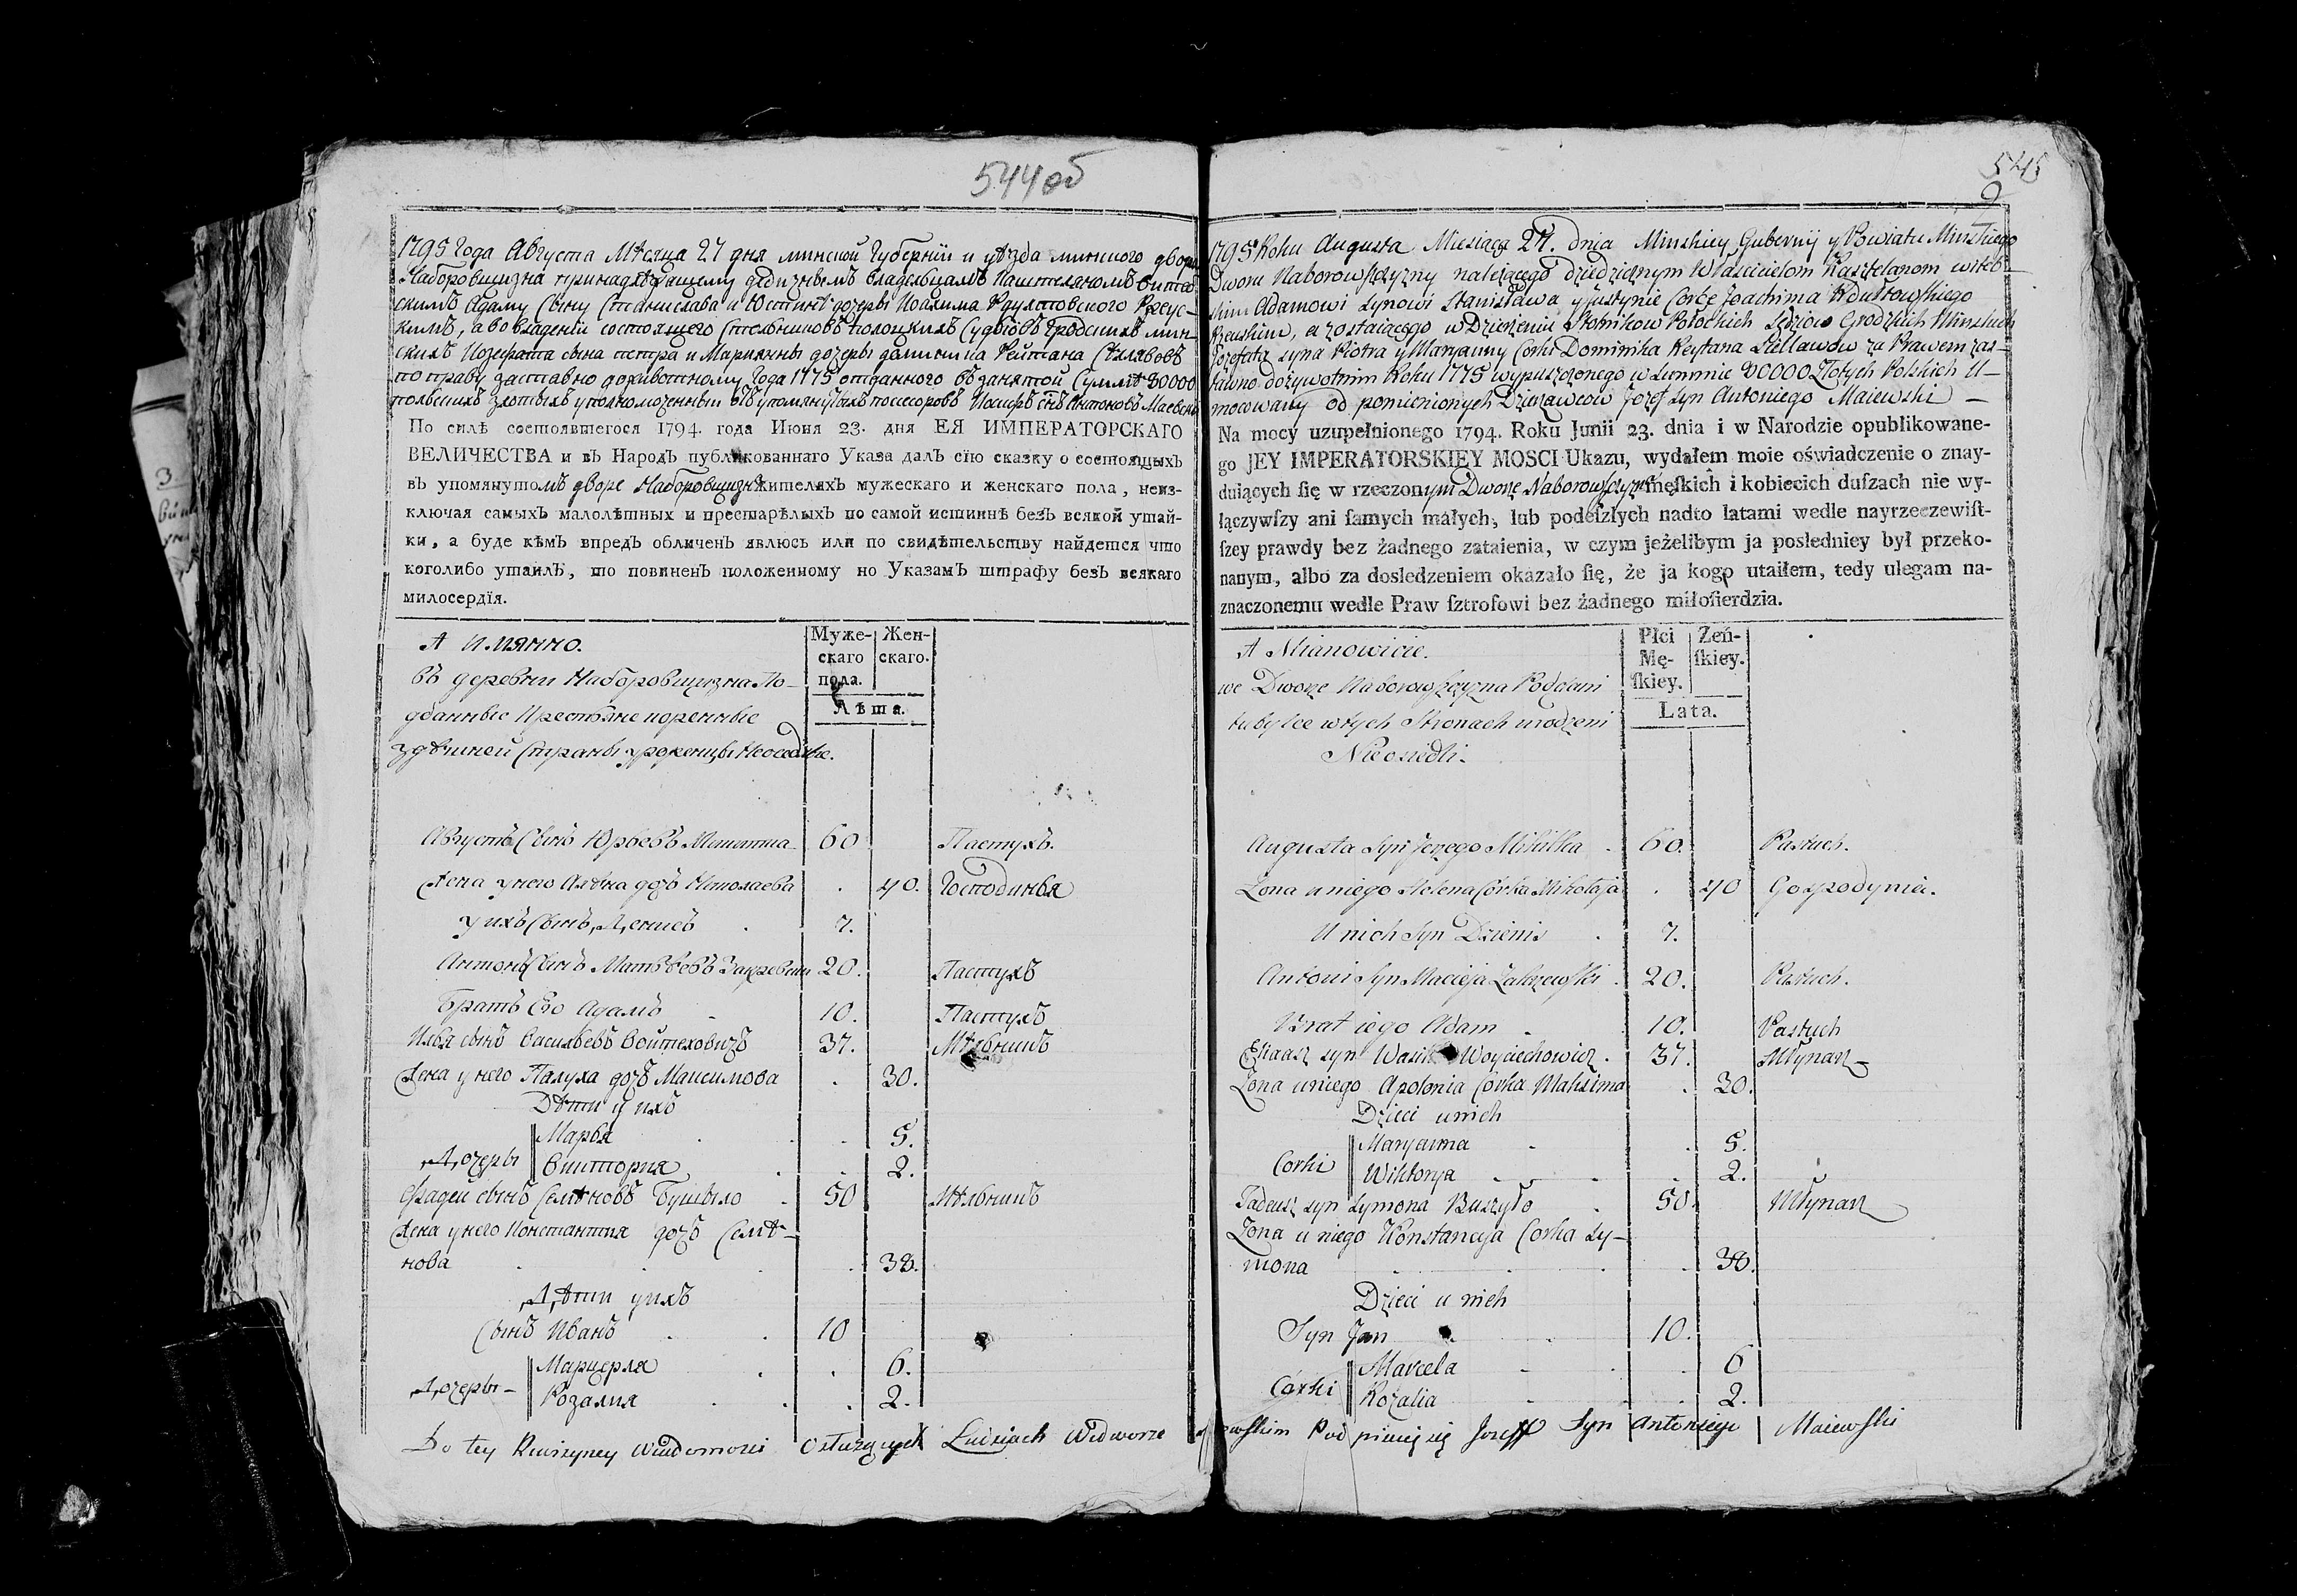 544 об
1795 Года Августа Мѣсяца 27 дня минской Губернїи и уѣзда минского двора
Наборовщизна принадлѣжащему дѣдизнымъ владельцамъ Каштеляномъ витеб-
скимъ Адаму Сыну Станислава и Юстинѣ дочеры Иоахима Рдултовского Ржеус-
кимъ, а во владенїи состоящего Стольниковъ полоцкихъ Судьїовъ Гродскихъ мин-
скихъ Иозефата сына петра и Марианны дочеры доминика Рейтана Сѣлявовъ
по праву заставно доживотному Года 1775 отданного въ занятой Суммѣ 80000
польскихъ злотыхъ уполномоченный отъ упомянутыхъ посесоровъ Иосифъ сынъ Антоновъ Маевски
По силѣ состоявшегося 1794. года Июня 23. дня ЕЯ ИМПЕРАТОРСКАГО
ВЕЛИЧЕСТВА и въ Народъ публикованнаго Указа далъ сїю сказку о состоящыхъ
въ упомянутомъ дворе Наборовщизнѣ жителяхъ мужескаго и женскаго пола, неиз-
ключая самыхъ малолѣтныхъ и престарѣлыхъ по самой истиннѣ безъ всякой утай-
ки, а буде кѣмъ впредъ обличенъ явлюсь или по свидѣтельству найдется что
коголибо утаилъ, то повиненъ положенному по Указамъ штрафу безъ всякаго
милосердїя.
А имянно.
Муже-скаго пола.
Жен-скаго.
Лѣта.
въ деревни Наборовщизна По-
дданные Крестьяне коренные
здѣшней Страны уроженцы Неоседлые.
Августъ Сынъ Юрьевъ Микитка 60 Пастухъ.
Жена унего Алѣна дочъ Николаева . 40. Господинья
у ихъ Сынъ Денисъ . 7.
Антонъ Сынъ Матвѣевъ Закревски 20. Пастухъ
Братъ Его Адамъ . 10. Пастухъ
Илья сынъ Васильевъ Войтеховичъ 37. Мѣльникъ
Жена унего Палуха дочъ Максимова . 30.
Дѣти у ихъ
Дочеры
Марья . 5.
Виктория . 2.
Фадеи сынъ Семѣновъ Бушыло . 50 Мѣльникъ
Жена унего Константия дочъ Семѣ-
нова . 38.
Дѣти уихъ
Сынъ Иванъ . 10
Дочеры
Марцеля . 6.
Розалия . 2.
545
9
1795 Roku Augusta Miesiąca 27. dnia Minskiey Gubernij y Powiatu Minskiego
Dworu Naborowszczyzny należącego dziedzicznym Właścicielom Kasztelanom witeb-
skim Adamowi synowi Stanisława y Justynie Corce Joachima Rdułtowskiego
Rzeuskim, a zostaiącego w Dzierżeniu Stolnikow Połockich Sędziow Grodzkich Minskich
Jozefata syna Piotra y Maryanny Corki Dominika Reytana Sielawow za Prawem zas-
tawno dożywotnim Roku 1775 wypuszczonego w Summie 80000 Złotych Polskich U-
mocowany od pomienionych Dzierzawcow Jozef syn Antoniego Maiewski —
Na mocy uzupełnionego 1794. Roku Junii 23. dnia i w Narodzie opublikowane-
go JEY IMPERATORSKIEY MOSCI Ukazu, wydałem moie oświadczenie o znay-
duiących ſię w rzeczonym Dworze Naborowszczyznie męſkich i kobiecich duſzach nie wy-
łączywſzy ani ſamych małych, lub podeſzłych nadto latami wedle nayrzeczewiſt-
ſzey prawdy bez żadnego zataienia, w czym jeżelibym ja posledniey był przeko-
nanym, albo za dosledzeniem okazało ſię, że ja kogo utaiłem, tedy ulegam na-
znaczonemu wedle Praw ſztrofowi bez żadnego miłoſierdzia.
A Mianowicie.
Płci Mę-ſkiey.
Zeń-ſkiey.
Lata.
we Dworze Naborowszczyzna Poddani
tubylce w tych Stronach urodzeni
Nieosiedli.
Augusta Syn Jerzego Mikitka . 60. Pastuch.
Zona u niego Helena Córka Mikołaja . 40 Gospodynia.
U nich Syn Dzienis . 7.
Antoni Syn Macieja Zakrzewski . 20. Pastuch.
Brat iego Adam . 10. Pastuch
Eliasz syn Wasila Woyciechowicz . 37. Młynarz
Zona uniego Apolonia Corka Maksima . 30.
Dzieci unich
Corki
Maryanna . 5.
Wiktorya . 2.
Tadeusz syn Symona Buszyło . 50. Młynarz
Zona u niego Konstancya Corka Sy-
mona . 38.
Dzieci u nich
Syn Jan . 10.
Córki
Marcela . 6
Rozalia . 2.
Do tey Rewizyney Wiadomosci Osłużących Ludziach Wedworze Podpisuię się Jozeff Syn Antoniego Maiewski